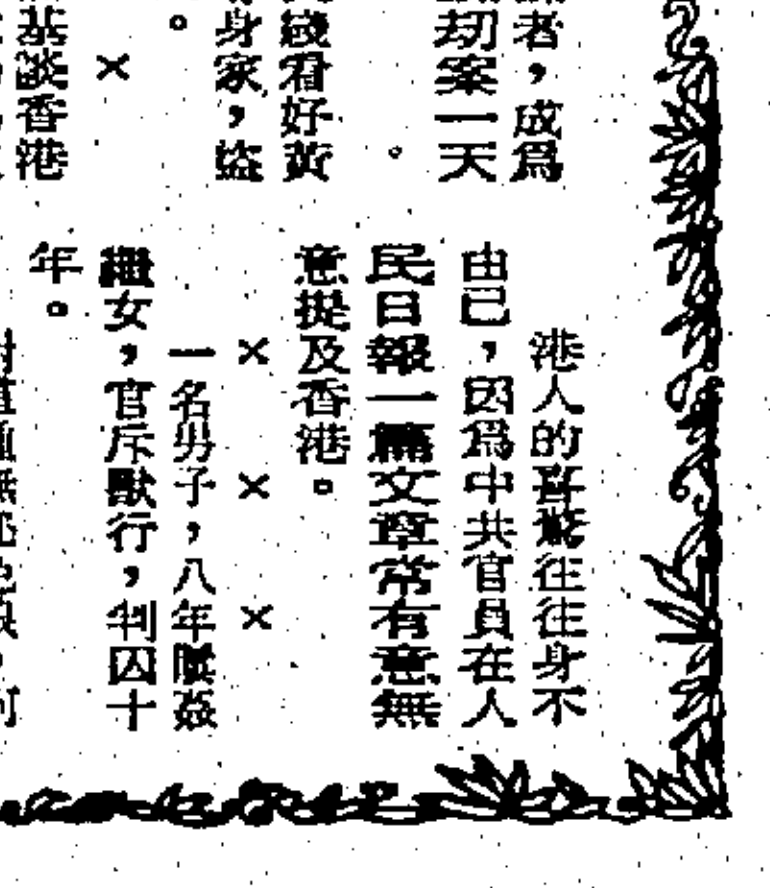 者，成爲
劫案一天
。
歲看好黃
身家，盜
。
×
基談香港
港人的喜往往身不
由已，因爲中共官員在人
民日報一篇文章常有意無
意提及香港。
× × ×
一名男子，八年姦
繼女，官斥獸行，判囚十
年。